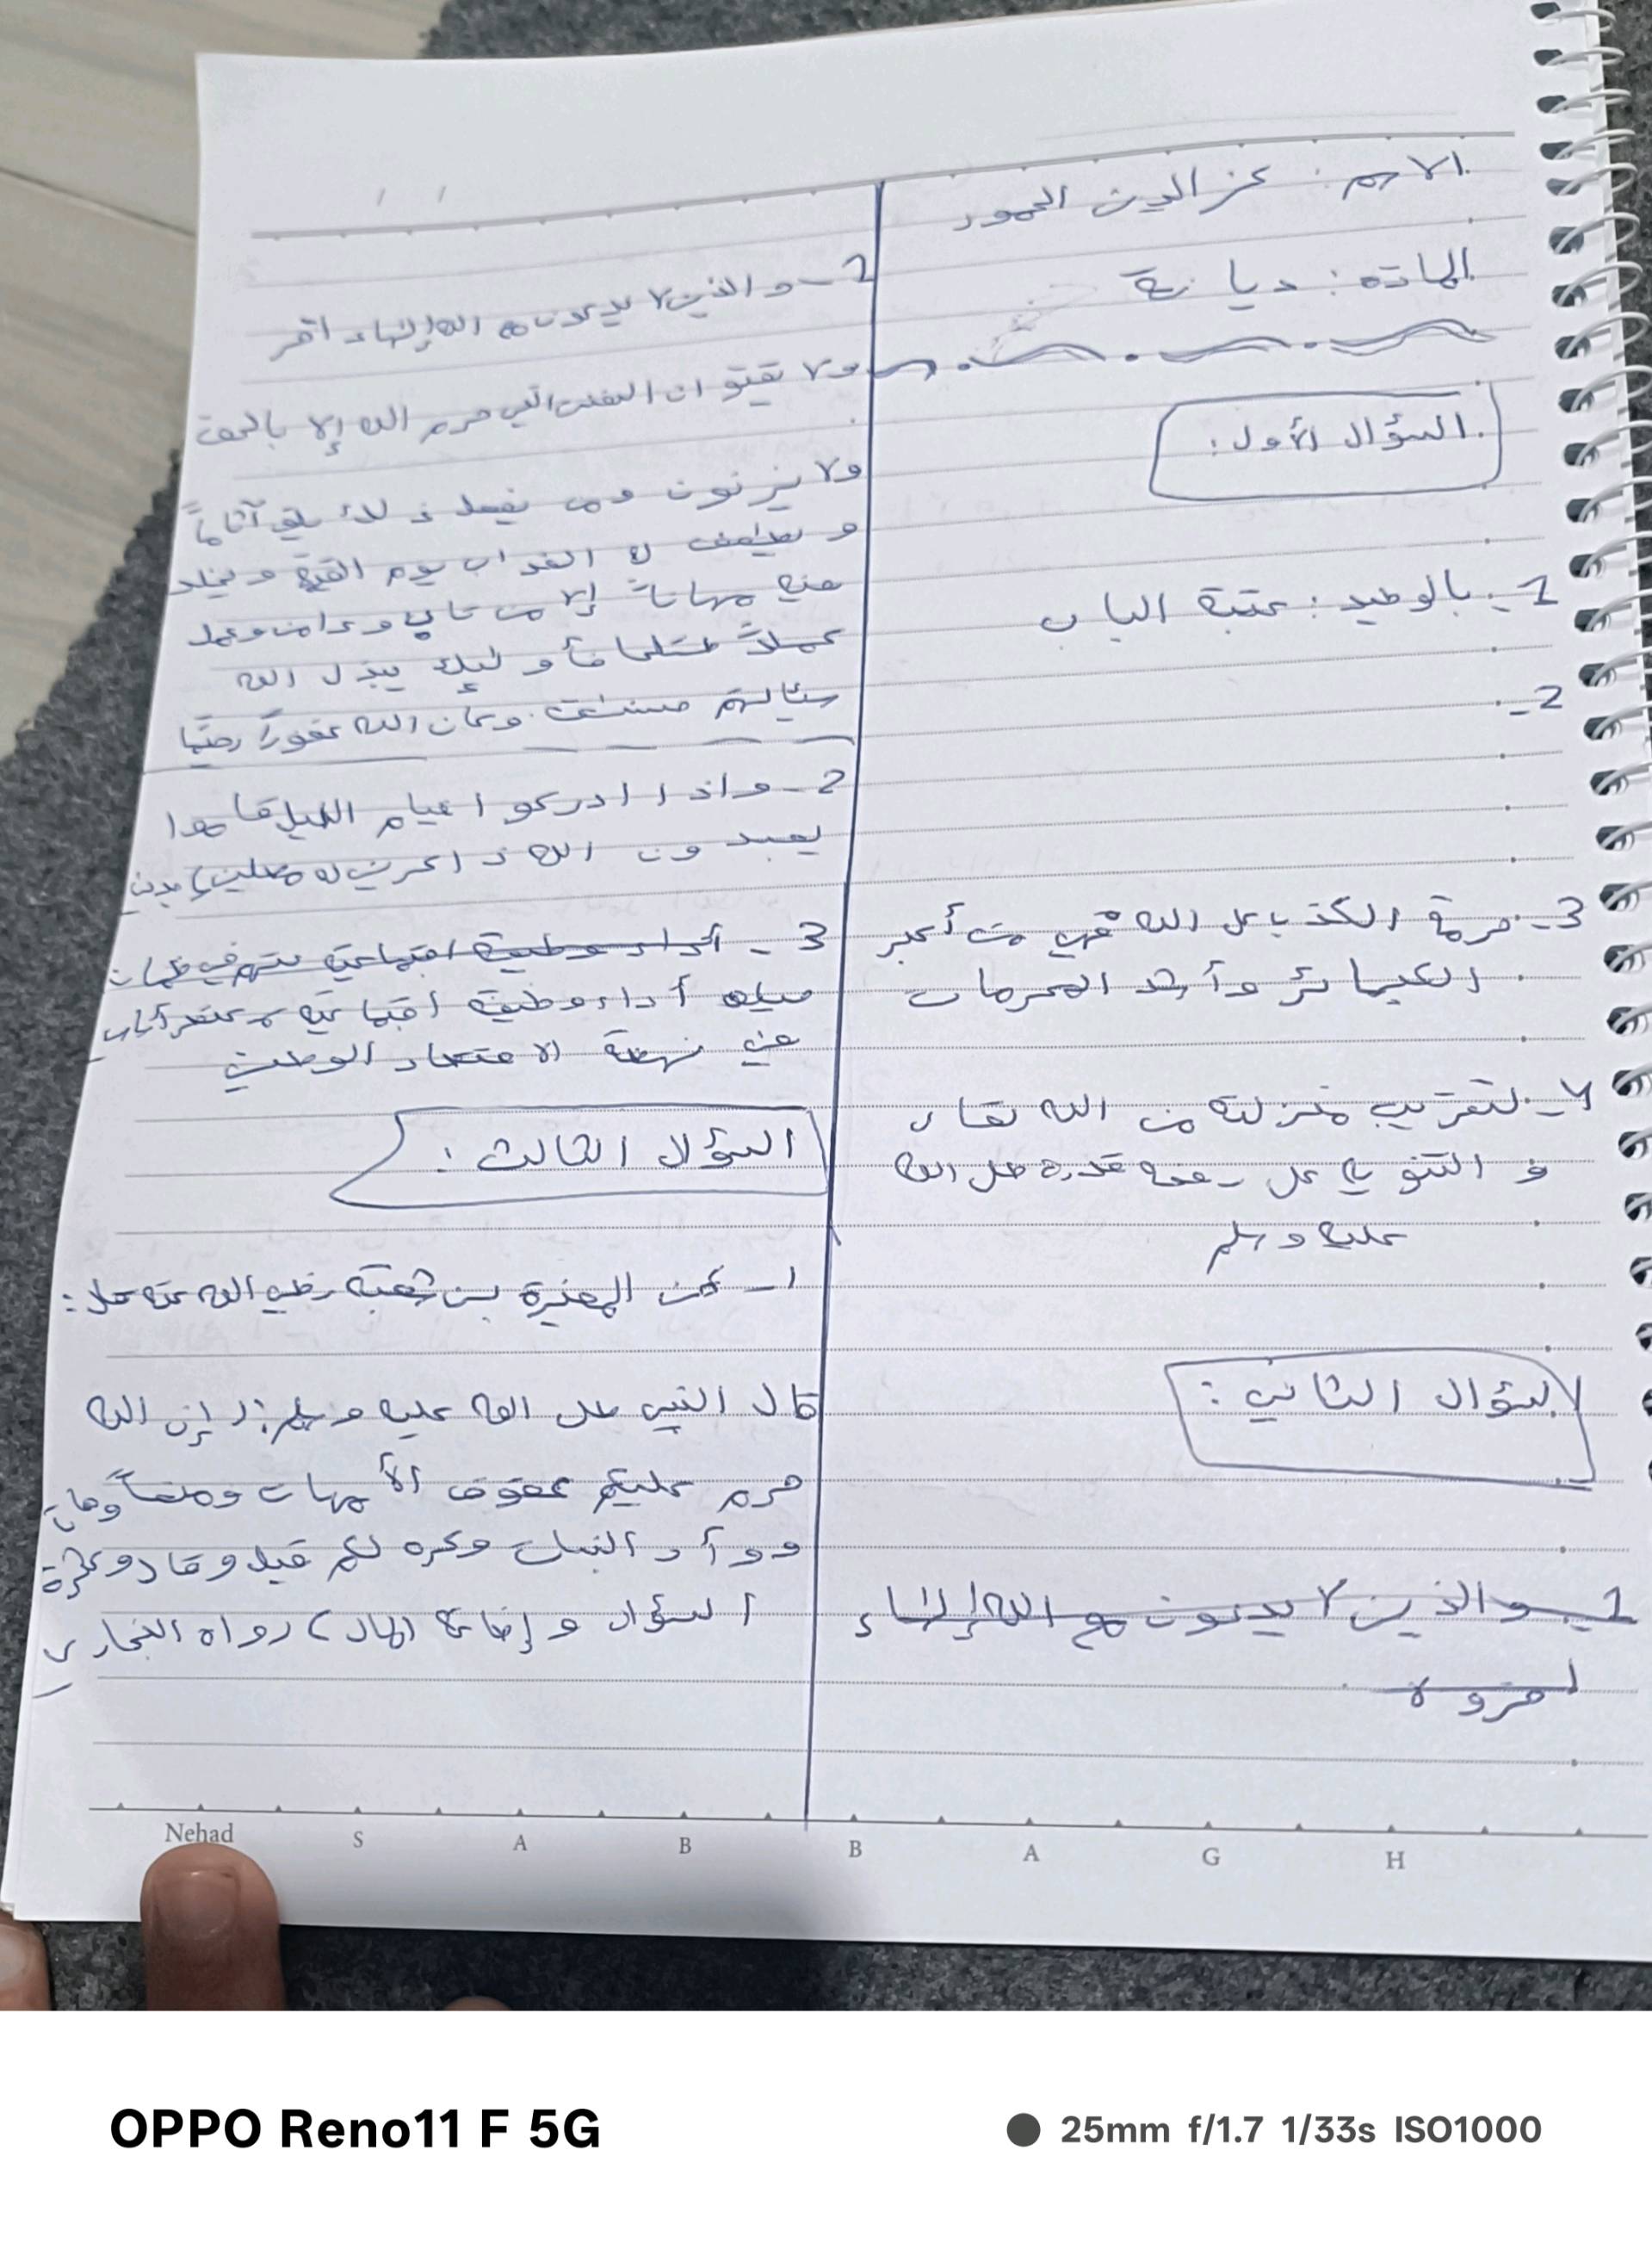 الاسم: عز الدين الحمود
المادة: ديانة
السؤال الأول:
1- بالوصيد: عتبة الباب
2-
3- حرمة الكذب على الله فهي من أكبر
الكبائر وأشد المحرمات
4- لتقريب منزلته من الله تعا
و التنويه على رفعة قدره صلى الله
عليه وسلم
السؤال الثاني:
1- والذين لا يدعون مع الله إلهاء
1- والذين لا يدعون مع الله إلهاء اخر
ولا يقتو ان النفس التي حرم الله إلا بالحق
ولا يزنون ومن يفعل ذلك يلق آثاماً
و يضعف له العذاب يوم القيمة ويخلد
فيه مهاناً إلا من تاب وءامن وعمل
عملاً صلحاً فأوليك يبدل الله
سيئاتهم حسنت وكان الله غفوراً رحيما
2- واذا ادركوا عيام الليل قاموا
يعبدون الله ذاكرين له
3- أداء وظيفة اجتماعية
أداء وظيفة اجتماعية
في نهضة الاقتصاد الوطني
السؤال الثالث:
1- عن المغيرة بن شعبة رضي الله عنه
قال النبي صلى الله عليه وسلم: (إن الله
حرم عليكم عقوق الأمهات ومنعاً وهات
ووأد البنات وكره لكم قيل وقال وكثرة
السؤال وإضاعة المال) رواه البخاري
Nehad S A B B A G H
OPPO Reno11 F 5G
25mm f/1.7 1/33s ISO1000